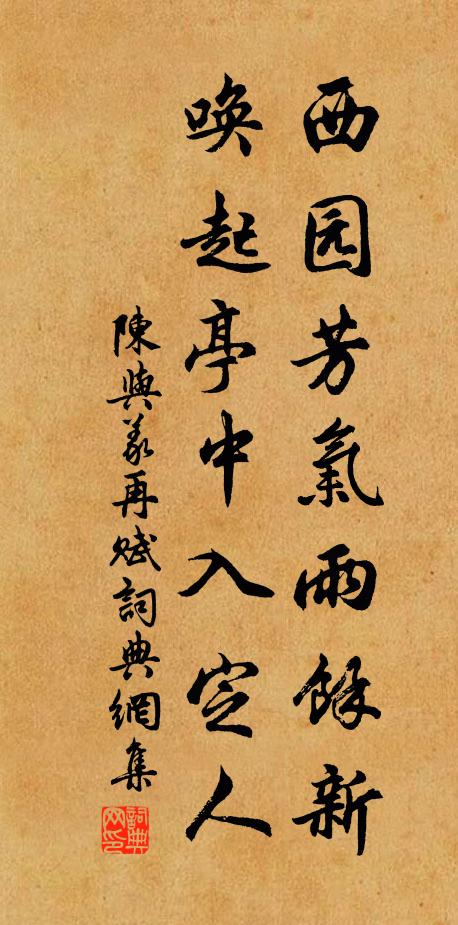 西园芳氣雨餘新
唤起亭中入定人
陳與義再赋詞典網集
詞典网印